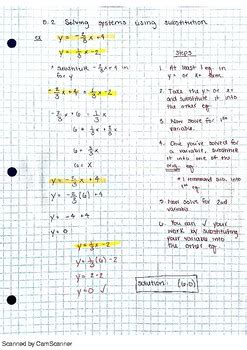 5.2 Solving systems using substitution
ex
y = -2/3x + 4
y = 1/3x - 2
* substitute -2/3x + 4 in
for y
-2/3x + 4 = 1/3x - 2
-2/3x + 6 = 1/3x
6 = 1/3x + 2/3x
6 = 3/3x
6 = x
y = -2/3x + 4
y = -2/3(6) + 4
y = -4 + 4
y = 0
y = 1/3x - 2
y = 1/3(6) - 2
y = 2 - 2
y = 0 ✓
Steps
1. At least 1 eq. in
y = or x = form
2. Take the y = or x =
and substitute it into
the other eq.
3. Now solve for 1st
variable.
4. Once you've solved for
a variable, substitute
it into one of the
orig. eq.
* I recommend sub. into
1st eq.
5. Now solve for 2nd
variable.
6. You can ✓ your
work by substituting
your variable into
the other eq.
solution: (6,0)
Scanned by CamScanner